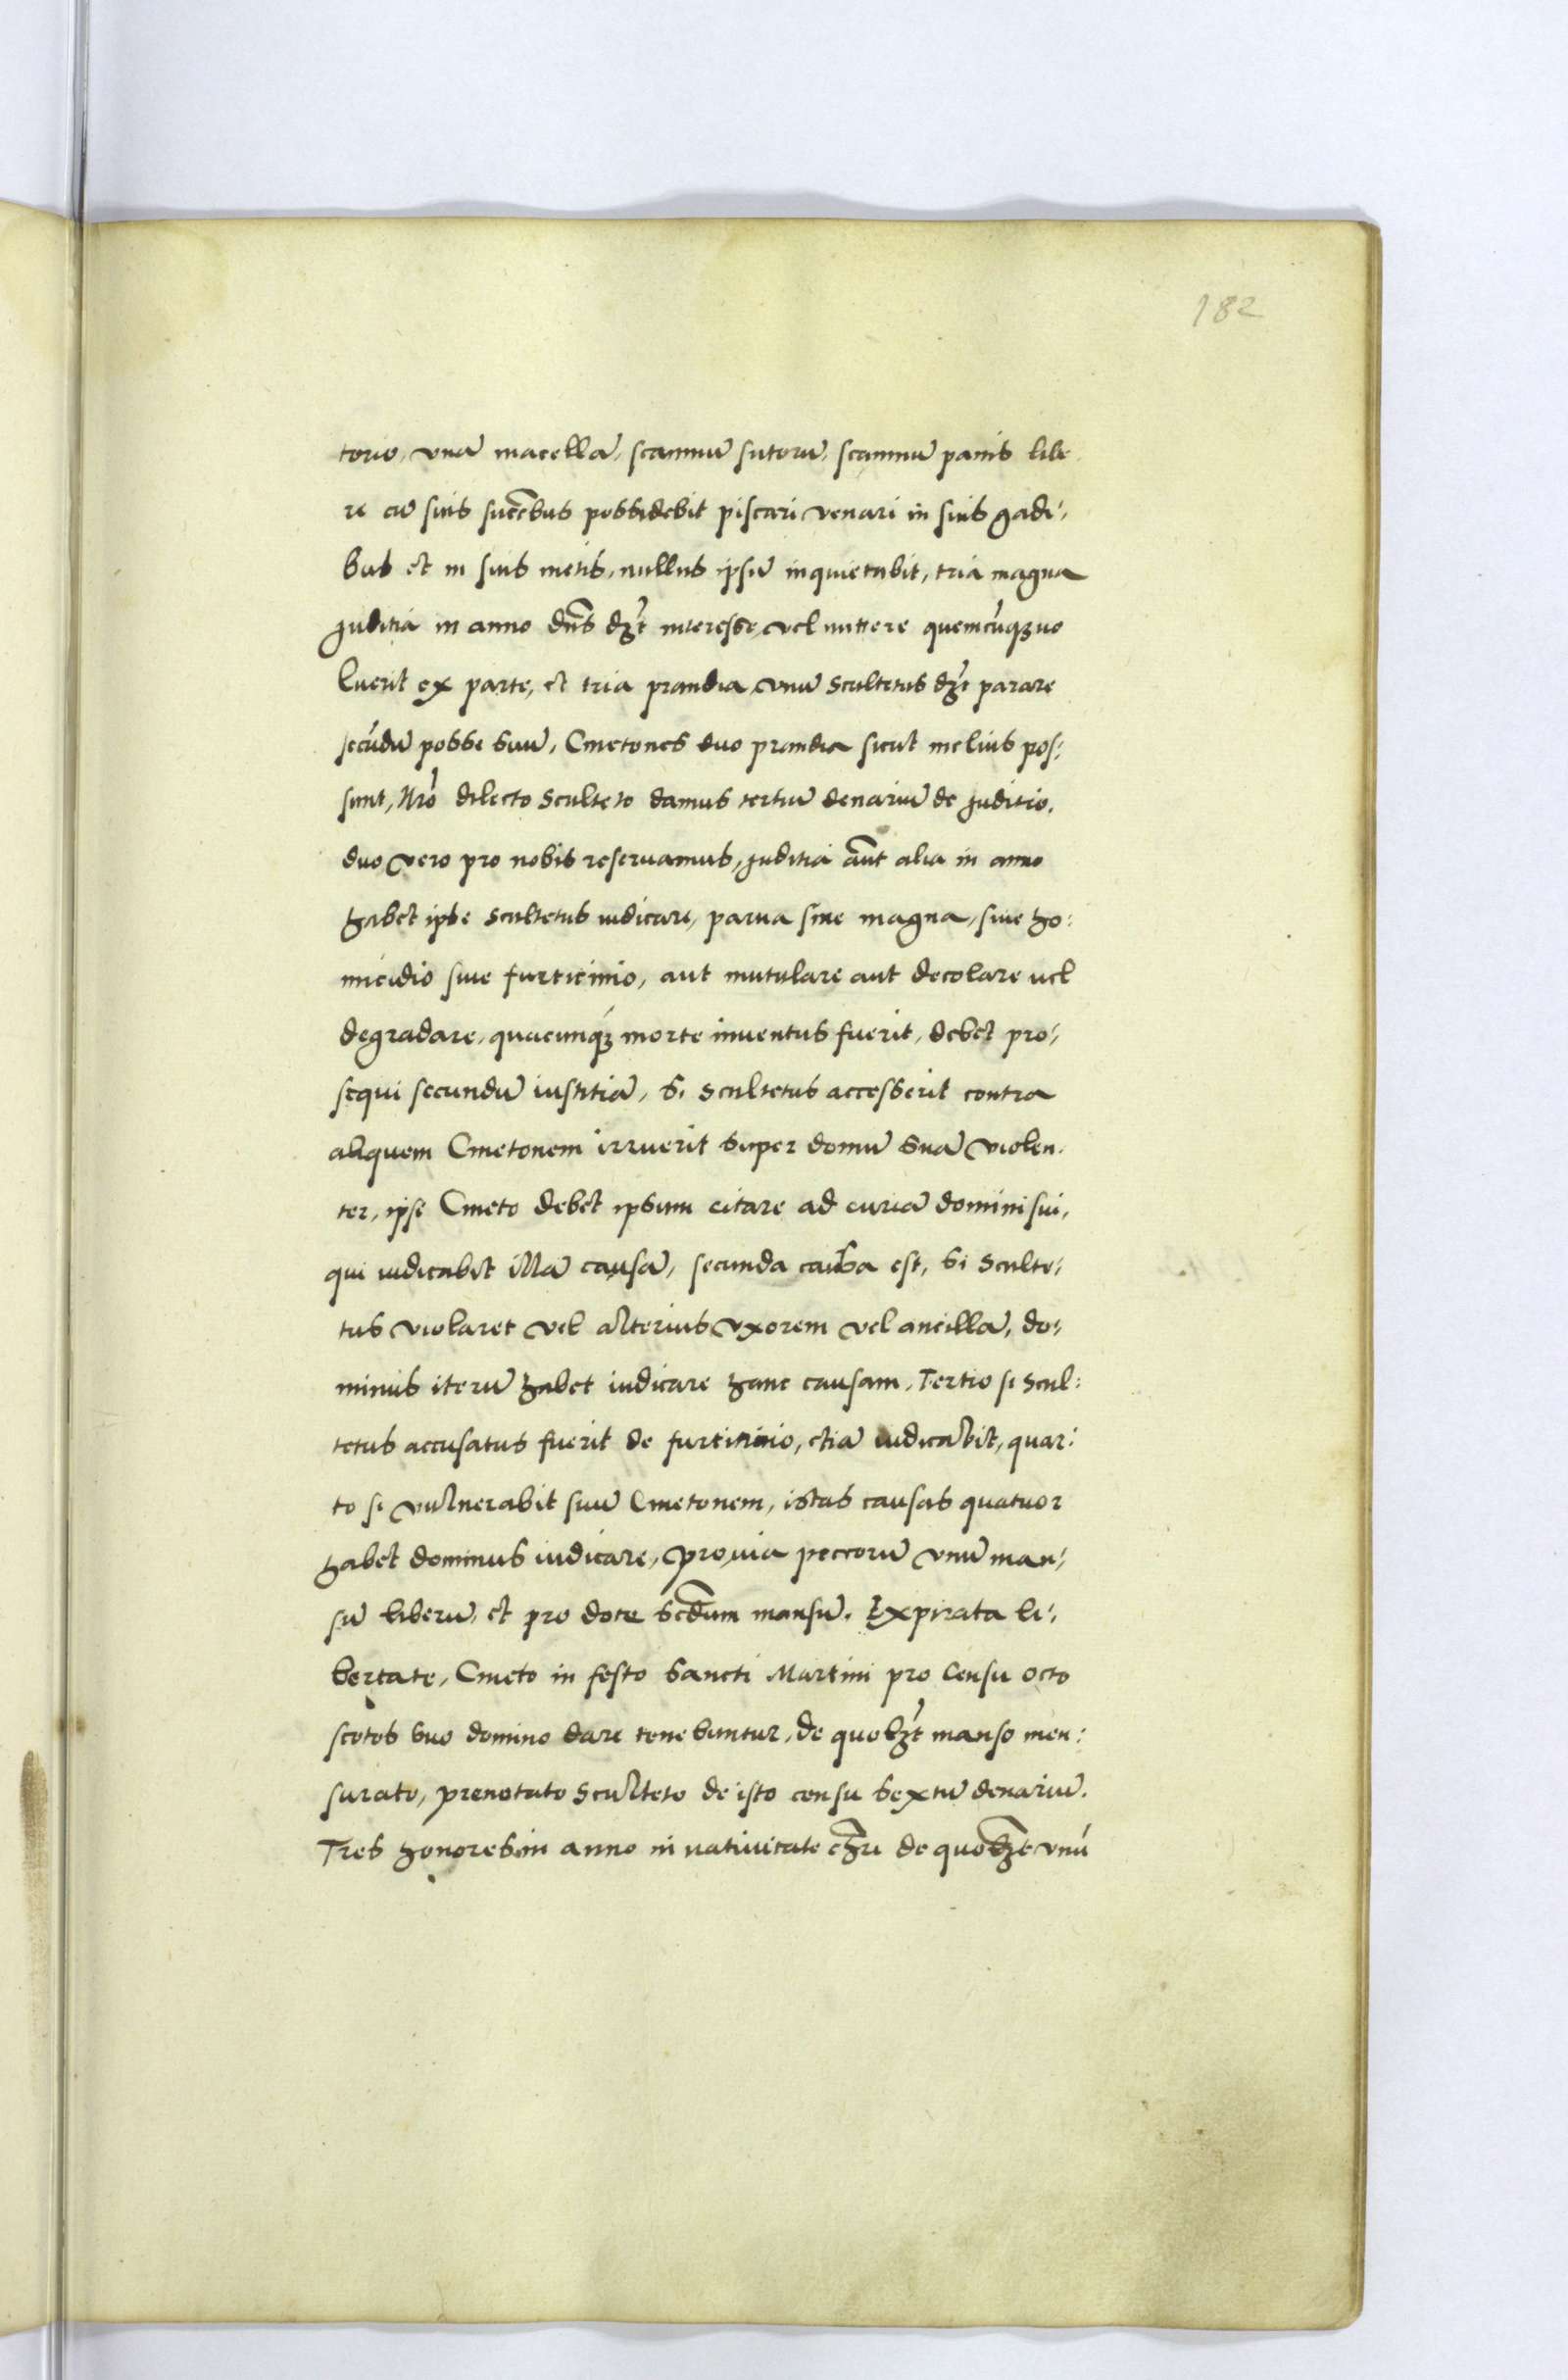 182
torio, vnā macellā, scamnū sutorū, scamnū panis libe
re cū suis succ̄bus possidebit piscari venari in suis gadi,
bus et in suis metis, nullus ipsū inquietabit, tria magna
juditia in anno dn̄s dꝫt interesse, vel mittere quemcūqꝫ vo
luerit ex parte, et tria prandia, vnū scultetus dꝫt parare
secūdū posse suū, Cmetones duo prandia sicut melius pos:
sunt, Nr̄o dilecto sculteto damus tertiū denariū de juditio.
duo vero pro nobis reseruamus, juditia aūt alia in anno
habet ipse scultetus iudicare, parua siue magna, siue ho:
micidio siue furticinio, aut mutulare aut decolare vel
degradare, quacunqꝫ morte inuentus fuerit, debet pro,
sequi secundū iustitiā, Si scultetus accesserit contra
aliquem Cmetonem irruerit super domū suā violen.
ter, ipse Cmeto debet ipsum citare ad curiā domini sui,
qui iudicabit illā causā, secunda causa est, si sculte,
tus violaret vel alterius vxorem vel ancillā, do,
minus iterū habet iudicare hanc causam, Tertio si scul:
tetus accusatus fuerit de furticinio, etiā iudicabit, quar:
to si vulnerabit suū Cmetonem, istas causas quatuor
habet dominus iudicare, pro via pecorū vnū man,
sū liberū, et pro dote scd̄um mansū. Expirata li,
bertate, Cmeto in festo Sancti Martini pro censu octo
scotos suo domino dare tenebuntur, de quolꝫt manso men:
surato, prenotato Sculteto de isto censu sextū denariū.
Tres honores in anno in natiuitate chr̄i de quolꝫt vnū